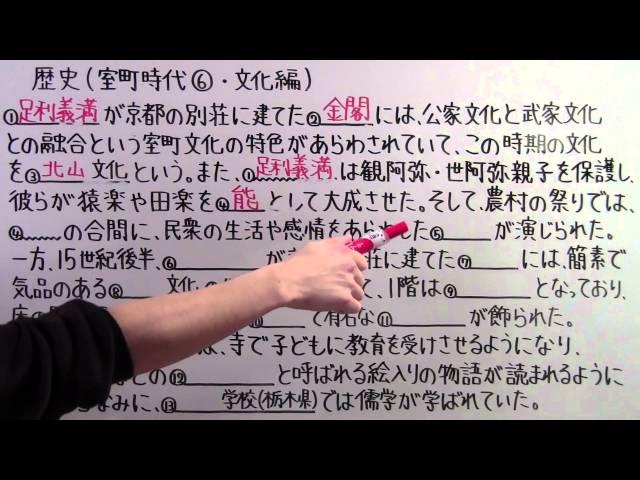 歴史(室町時代⑥・文化編)
①足利義満が京都の別荘に建てた②金閣には、公家文化と武家文化
との融合という室町文化の特色があらわされていて、この時期の文化
を③北山文化という。また、①足利義満は観阿弥・世阿弥親子を保護し、
彼らが猿楽や田楽を④能として大成させた。そして、農村の祭りでは、
④の合間に、民衆の生活や感情をあらわした⑤が演じられた。
一方、15世紀後半、⑥が荘に建てた⑦には、簡素で
気品のある⑧文化て、1階は⑨となっており、
⑩で有名な⑪が飾られた。
は、寺で子どもに教育を受けさせるようになり、
どの⑫と呼ばれる絵入りの物語が読まれるように
なみに、⑬学校(栃木県)では儒学が学ばれていた。